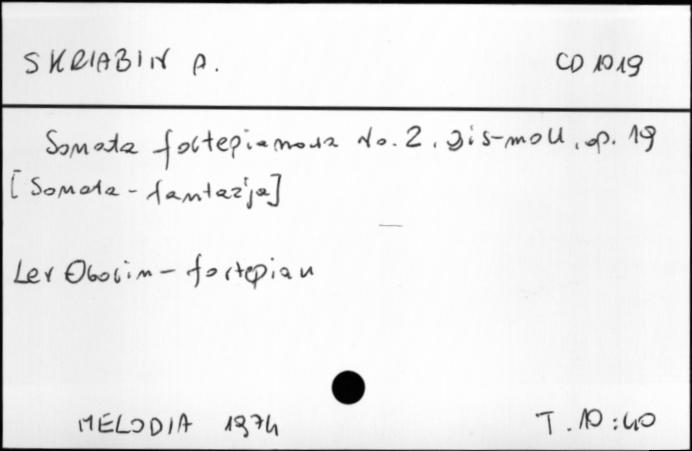 SKRIABIN A. CD 1019
Sonata fortepianowa No. 2, gis-moll, op. 19
[Sonata - fantazja]
Lev Oborin - fortepian
MELODIA 1974 T. 10:40